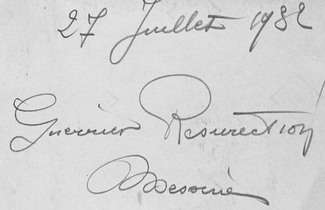 27 Juillet 1982
Guerrier Resurection